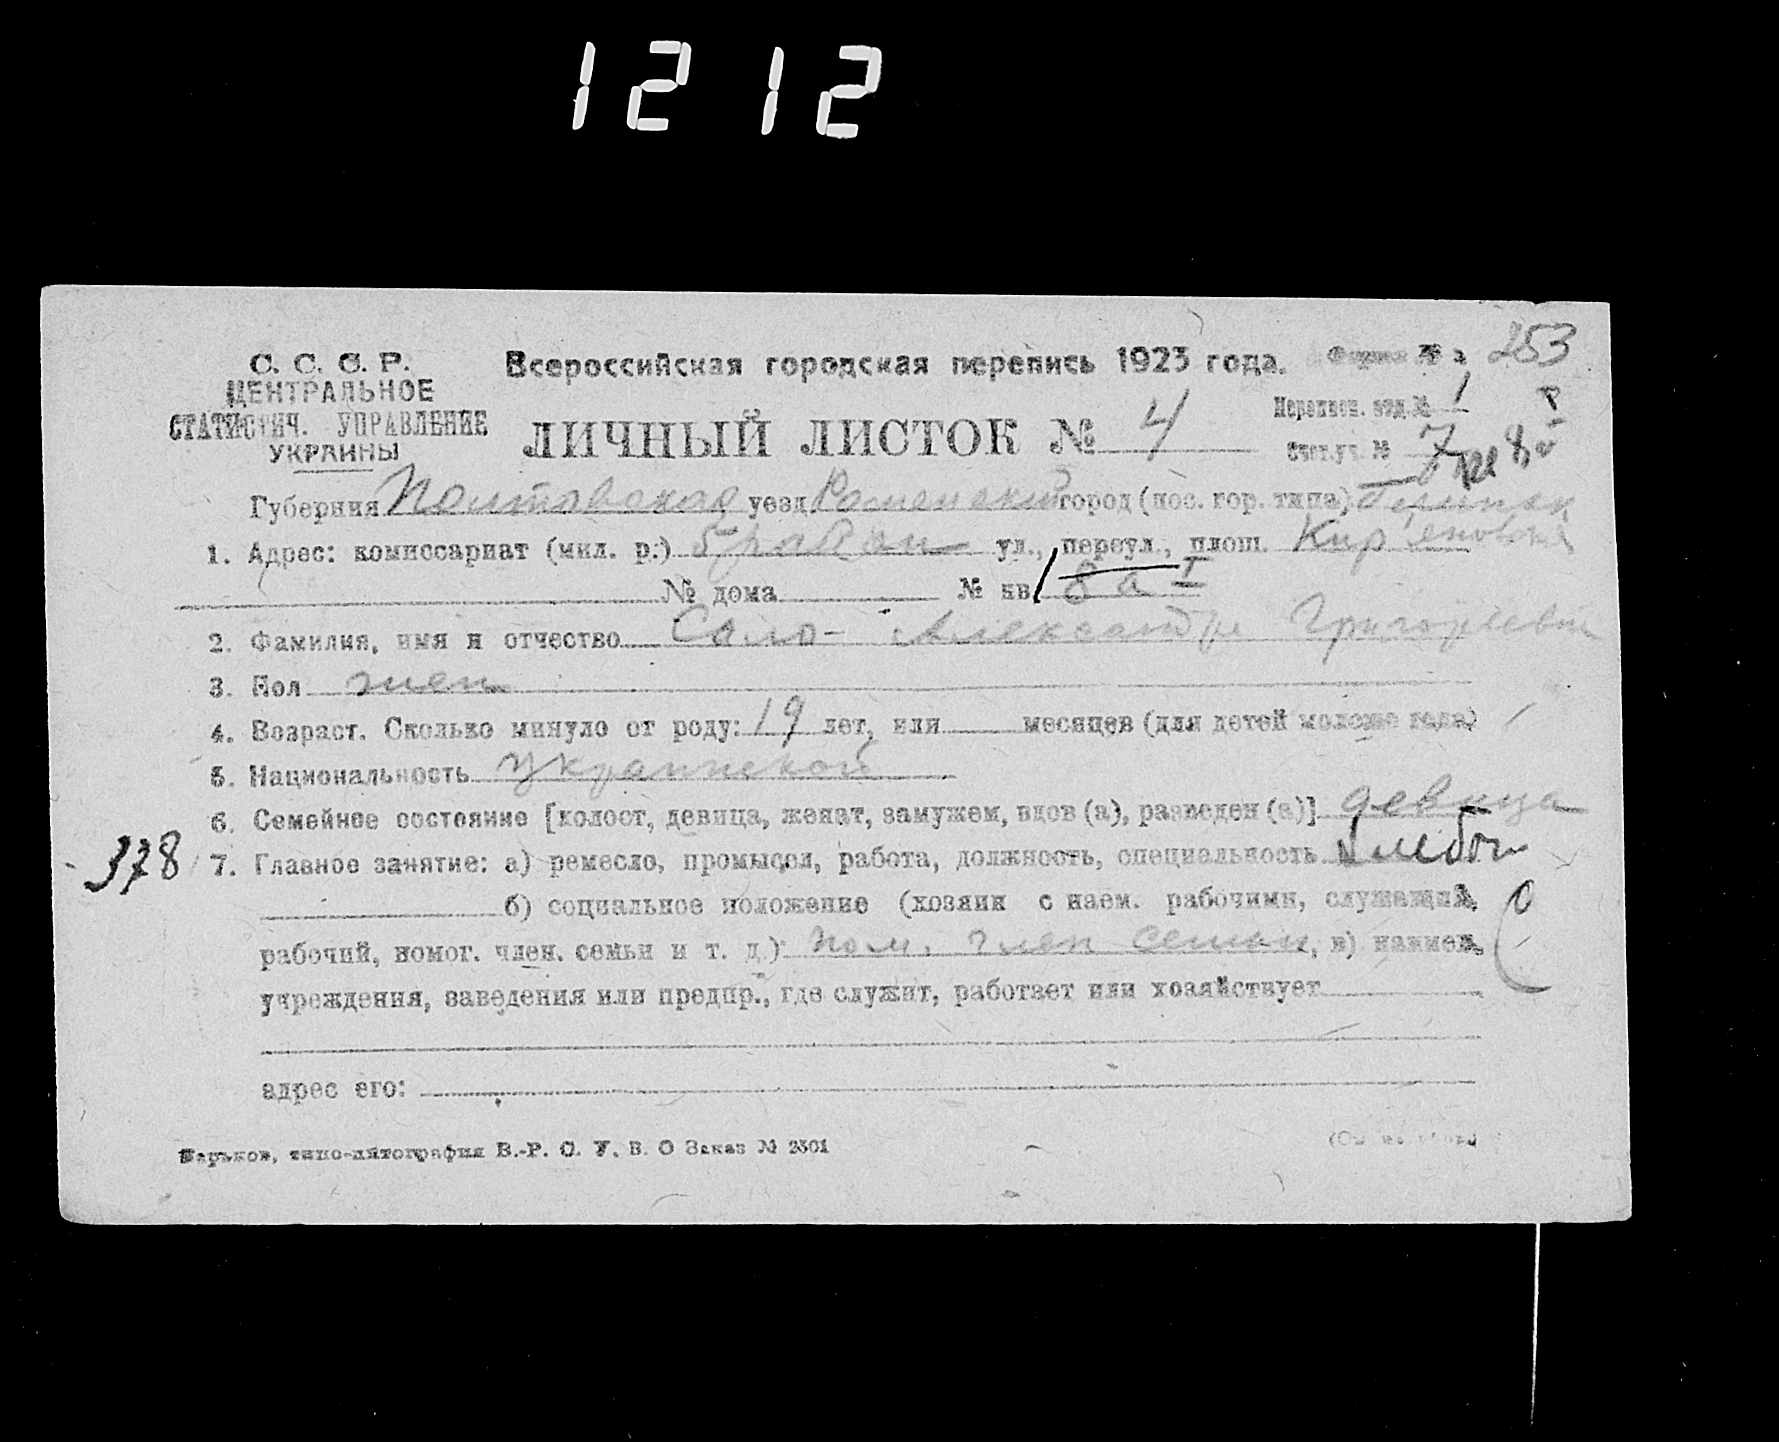 1212
С. С. С. Р.
ЦЕНТРАЛЬНОЕ
СТАТИСТИЧ. УПРАВЛЕНИЕ
УКРАИНЫ
Всероссийская городская перепись 1923 года.
Форма № 2 253
ЛИЧНЫЙ ЛИСТОК № 4
Переписн. отд. № 1
Счетн. уч. № 7
Губерния Полтавская уезд Роменский город (пос. гор. типа) Глинск
1. Адрес: комиссариат (мил. р.) ул., переул., площ.
№ дома № кв. 8 а I
2. Фамилия, имя и отчество Сало - Александра Григорьевна
3. Пол жен
4. Возраст. Сколько минуло от роду: 19 лет, или месяцев (для детей моложе года)
5. Национальность Украинской
6. Семейное состояние [холост, девица, женат, замужем, вдов (а), разведен (а)] девица
378
7. Главное занятие: а) ремесло, промысел, работа, должность, специальность хлебоп
б) социальное положение (хозяин с наем. рабочими, служащий,
рабочий, помог. член. семьи и т. д.) пом. член семьи, в) наимен.
учреждения, заведения или предпр., где служит, работает или хозяйствует
адрес его:
Харьков, типо-литография В.-Р. С. У. В. О Заказ № 2501